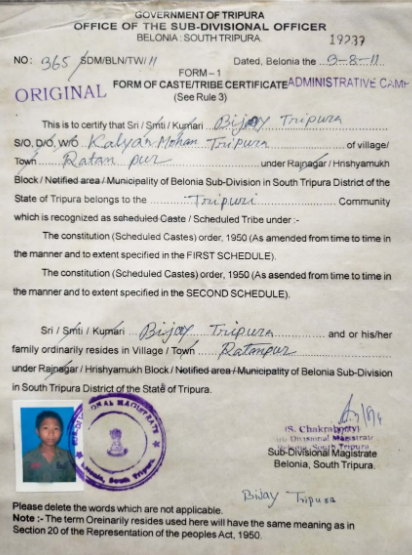 GOVERNMENT OF TRIPURA
OFFICE OF THE SUB-DIVISIONAL OFFICER
BELONIA : SOUTH TRIPURA.
19237
NO: 365/SDM/BLN/TW/11 Dated, Belonia the 9-8-11
FORM-1
ORIGINAL FORM OF CASTE/TRIBE CERTIFICATE ADMINISTRATIVE CAMP
(See Rule 3)
This is to certify that Sri / Smti / Kumari Bijay Tripura
S/O, D/O, W/O Kalyan Mohan Tripura of village/
Town Ratan pur under Rajnagar / Hrishyamukh
Block / Notified area / Municipality of Belonia Sub-Division in South Tripura District of the
State of Tripura belongs to the Tripuri Community
which is recognized as scheduled Caste / Scheduled Tribe under :-
The constitution (Scheduled Castes) order, 1950 (As amended from time to time in
the manner and to extent specified in the FIRST SCHEDULE).
The constitution (Scheduled Castes) order, 1950 (As asended from time to time in
the manner and to extent specified in the SECOND SCHEDULE).
Sri / Smti / Kumari Bijay Tripura and or his/her
family ordinarily resides in Village / Town Ratanpur
under Rajnagar / Hrishyamukh Block / Notified area / Municipality of Belonia Sub-Division
in South Tripura District of the State of Tripura.
SUB-DIVISIONAL MAGISTRATE
Belonia, South Tripura.
(S. Chakraborty)
Sub-Divisional Magistrate
Belonia, South Tripura
Sub-Divisional Magistrate
Belonia, South Tripura.
Bijay Tripura
Please delete the words which are not applicable.
Note :- The term Oreinarily resides used here will have the same meaning as in
Section 20 of the Representation of the peoples Act, 1950.